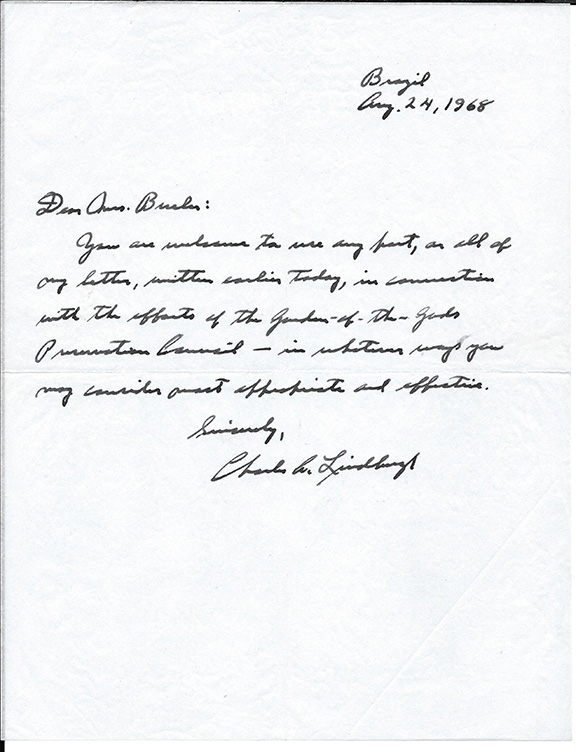 Brazil
Aug. 24, 1968
Dear Mrs.
You are welcome to use any part, or all of
my letter, written earlier today, in connection
with the efforts of the Garden-of-the-Gods
Preservation Council — in whatever ways you
may consider most appropriate and effective.
Sincerely,
Charles A. Lindbergh